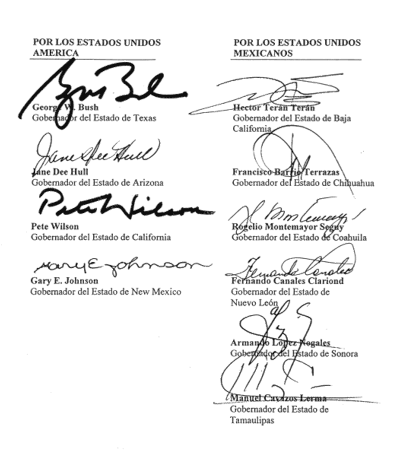 POR LOS ESTADOS UNIDOS
AMERICA
George W. Bush
Gobernador del Estado de Texas
Jane Dee Hull
Jane Dee Hull
Gobernador del Estado de Arizona
Pete Wilson
Pete Wilson
Gobernador del Estado de California
Gary E Johnson
Gary E. Johnson
Gobernador del Estado de New Mexico
POR LOS ESTADOS UNIDOS
MEXICANOS
Hector Terán Terán
Gobernador del Estado de Baja
California
Francisco Barrio Terrazas
Gobernador del Estado de Chihuahua
Rogelio Montemayor Seguy
Gobernador del Estado de Coahuila
Fernando Canales
Fernando Canales Clariond
Gobernador del Estado de
Nuevo León
Armando López Nogales
Gobernador del Estado de Sonora
Manuel Cavazos Lerma
Gobernador del Estado de
Tamaulipas